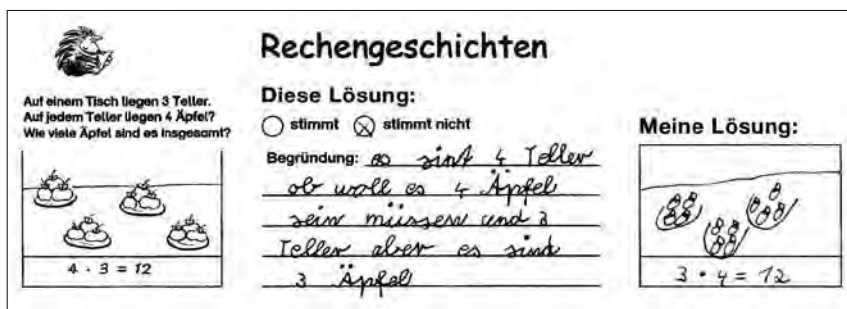 Rechengeschichten
Auf einem Tisch liegen 3 Teller.
Auf jedem Teller liegen 4 Äpfel?
Wie viele Äpfel sind es insgesamt?
4 · 3 = 12
Diese Lösung:
stimmt stimmt nicht
Begründung: es sint 4 Teller
ob woll es 4 Äpfel
sein müssen und 3
Teller aber es sind
3 Äpfel
Meine Lösung:
3 · 4 = 12